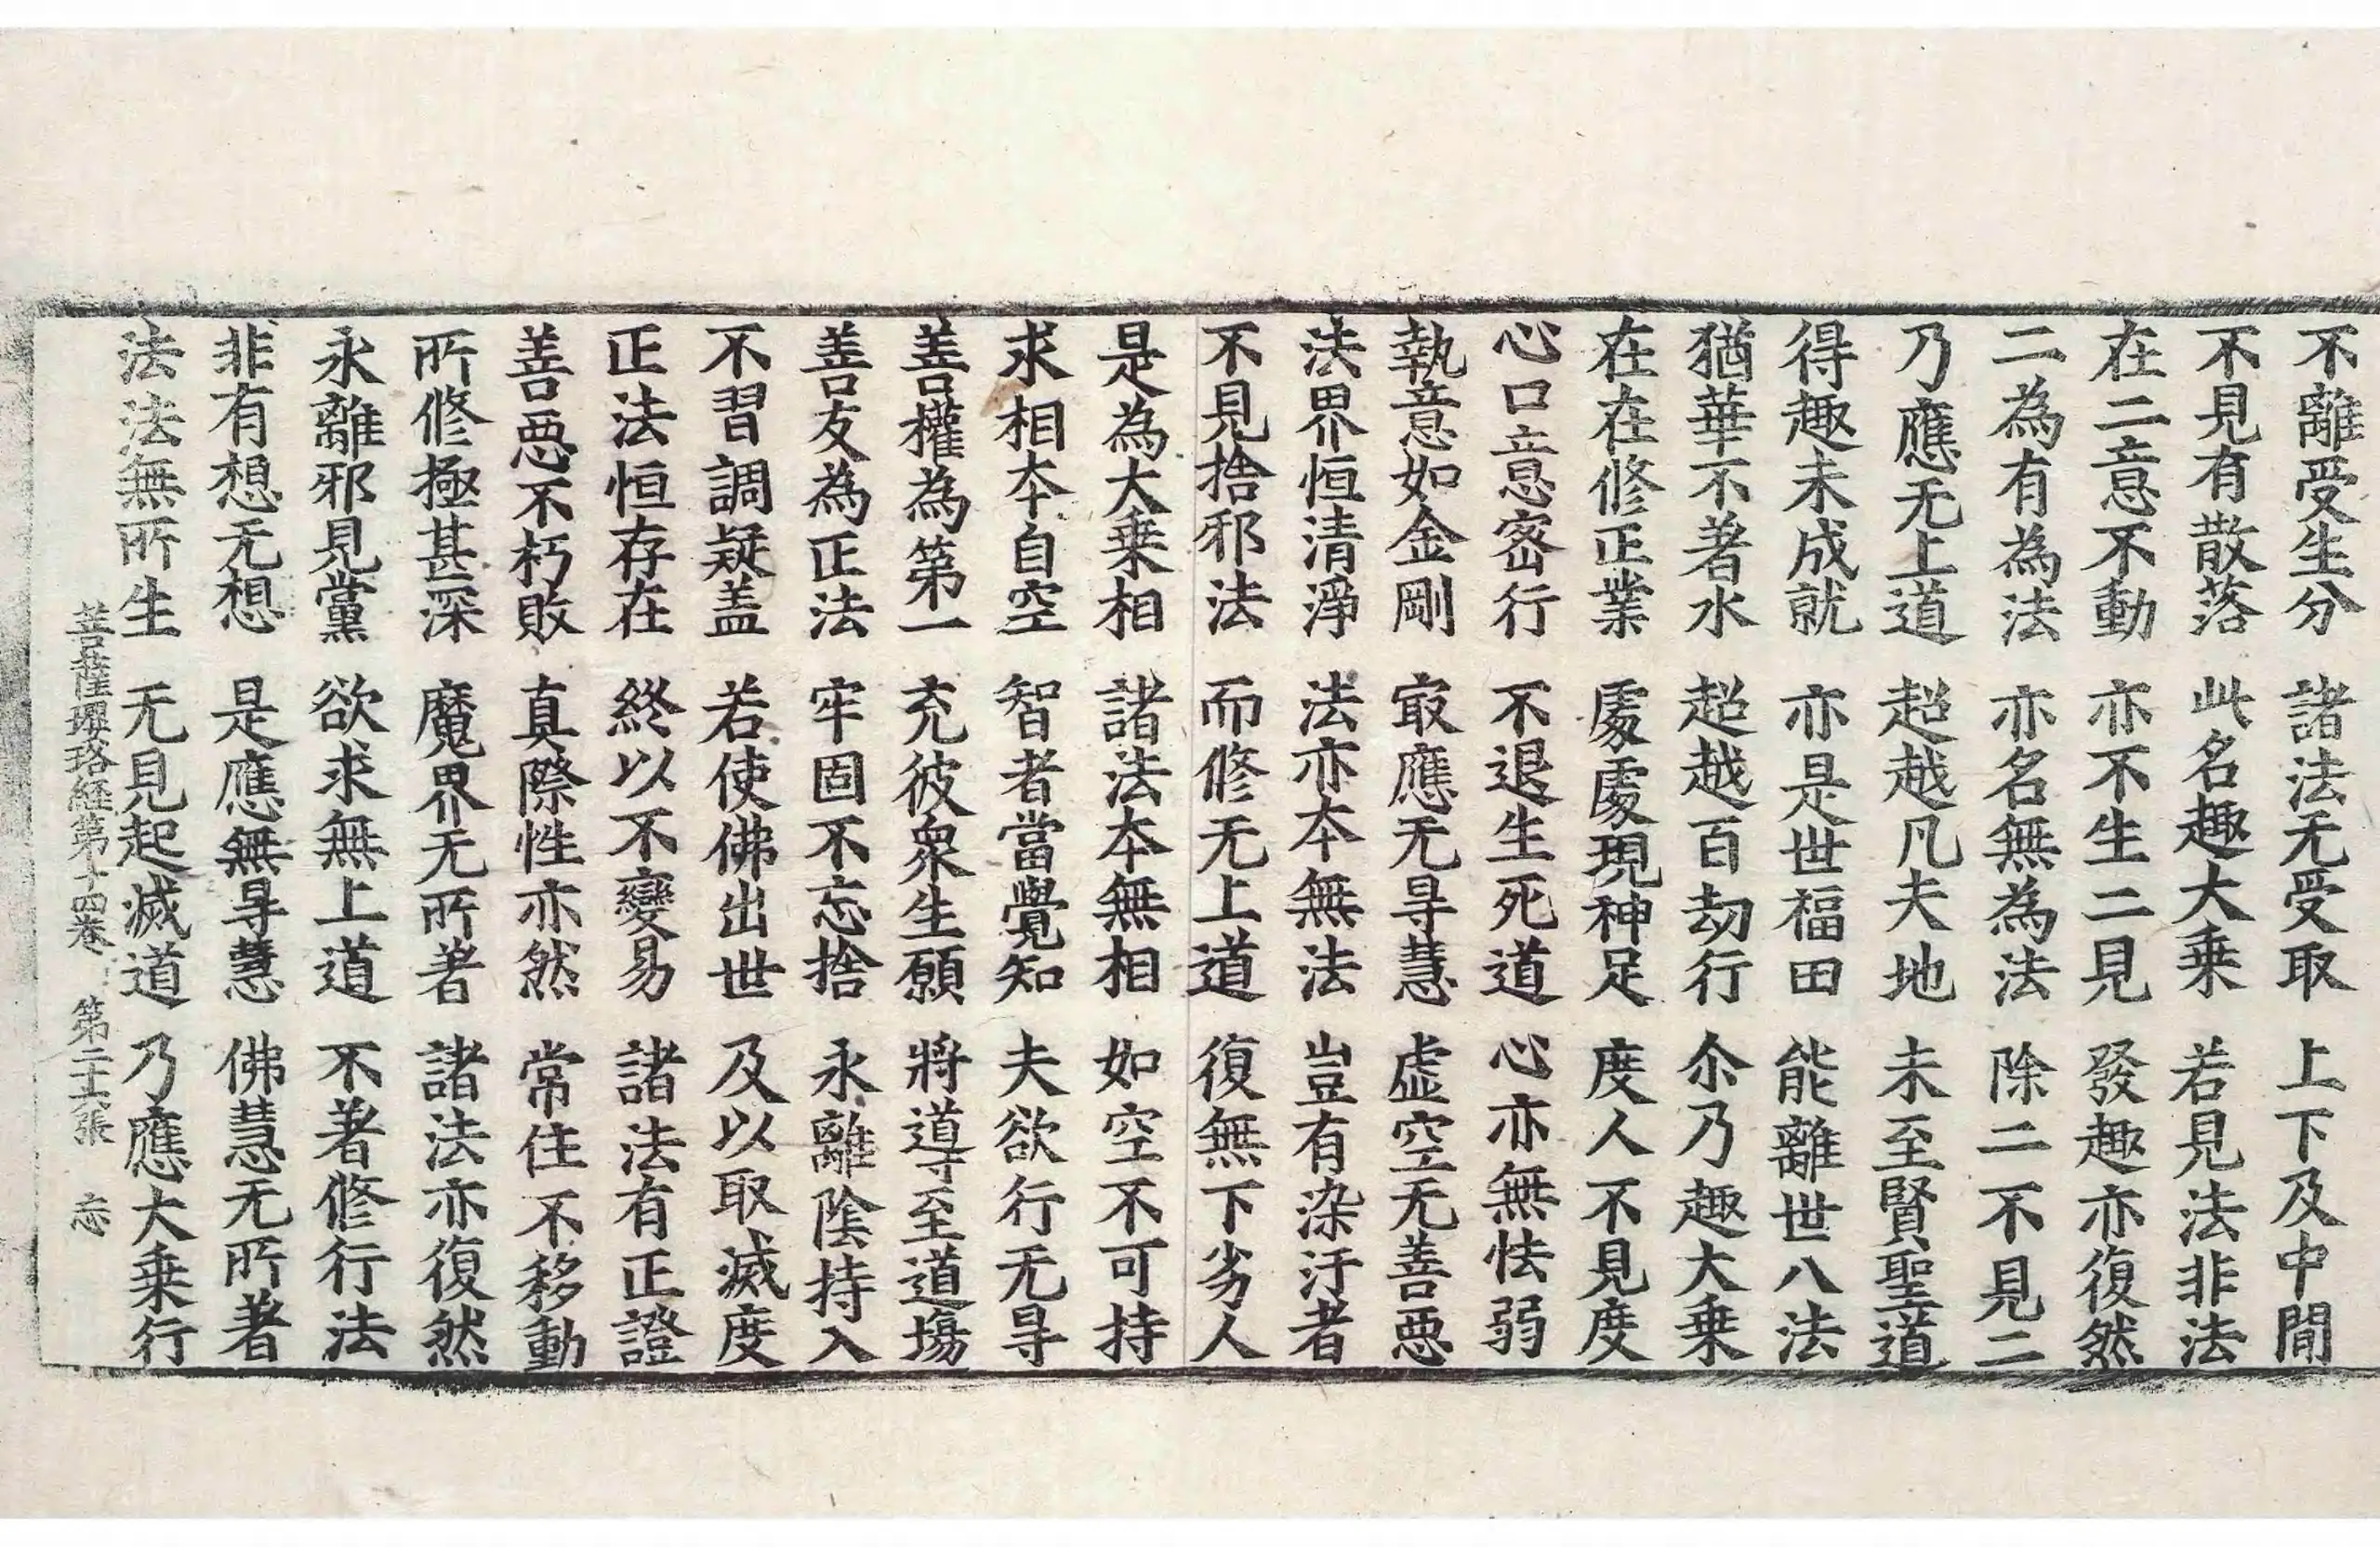 不離受生分　諸法无受取　上下及中閒
不見有散落　此名趣大乗　若見法非法
在二意不動　亦不生二見　發趣亦復然
二為有為法　亦名無為法　除二不見二
乃應无上道　超越凡夫地　未至賢聖道
得趣未成就　亦是世福田　能離世八法
猶華不著水　超越百劫行　尒乃趣大乗
在在修正業　處處現神足　度人不見度
心口意密行　不退生死道　心亦無怯弱
執意如金剛　㝡應无㝵慧　虛空无善惡
法界恒清淨　法亦本無法　豈有染汙者
不見捨邪法　而修无上道　復無下劣人
是為大乗相　諸法本無相　如空不可持
求相本自空　智者當覺知　夫欲行无㝵
善權為第一　充彼衆生願　將導至道塲
善友為正法　牢固不忘捨　永離陰持入
不習調疑盖　若使佛出世　及以取滅度
正法恒存在　終以不變易　諸法有正證
善惡不朽敗　真際性亦然　常住不移動
所修極甚深　魔界无所著　諸法亦復然
永離邪見黨　欲求無上道　不著修行法
非有想无想　是應無㝵慧　佛慧无所著
法法無所生　无見起滅道　乃應大乗行
菩薩瓔珞経第十四卷　第二十六張　忘